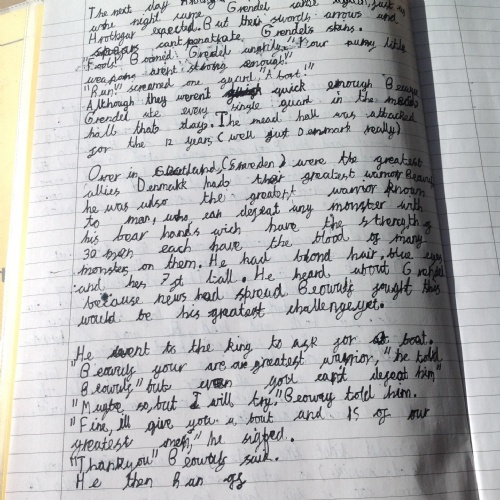 The next day
who night came Grendel came again, just as
Hrothgar expected. But their swords arrows and
spears cant panatrate Grendels skins.
"Fools" Boomed Grendel unghily. "Your puny little
weapons arent strong enough"
"Run!" screamed one guard "A boat!"
Although they werent quick enough Because
Grendel ate every single guard in the mead
hall that day. The mead hall was attacked
for the 12 years (well just Denmark really)
Over in Geatland, (Sweeden) were the greatest
allies Denmark had their greatest warrior Beowulf
he was also the greatest warrior known
to man, who can defeat any monster with
his bear hands wich have the strength of
30 men each have the blood of many
monsters on them. He had blond hair, blue eyes
and hes 7st tall. He heard about Grendel
because news had spread. Beowulf fought this
would be his greatest challenge yet.
"He went to the king to ask for a boat.
"Beowulf your are are greatest warrior," he told
Beowulf" but even you cant defeat him"
"Maybe so, but I will try." Beowulf told him.
"Fine, ill give you a boat and 15 of our
greatest men," he sighed.
"Thankyou" Beowulf said.
He then Ran